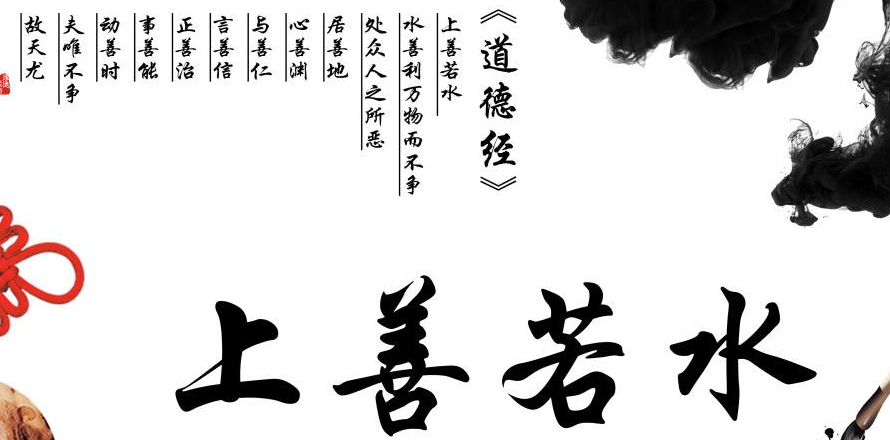 《道德经》
上善若水
水善利万物而不争
处众人之所恶
居善地
心善渊
与善仁
言善信
正善治
事善能
动善时
夫唯不争
故天尤
上善若水